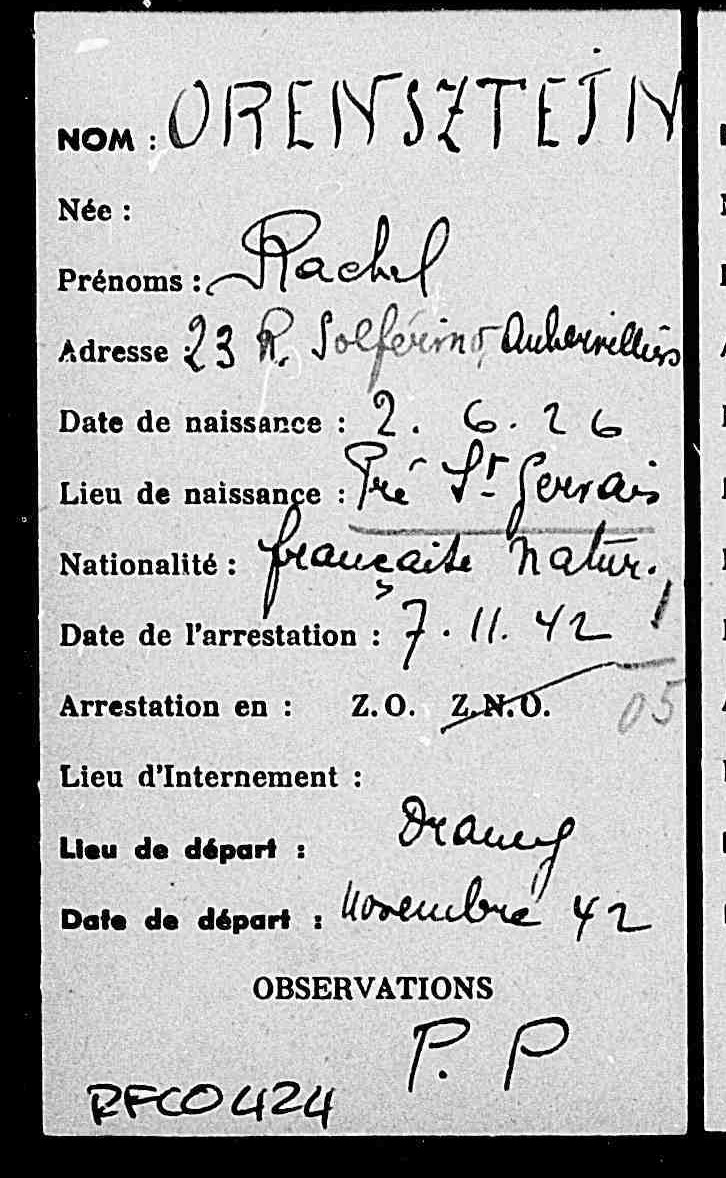 NOM : ORENSZTEJN
Née :
Prénoms : Rachel
Adresse : 23 R. Solférino, Aubervilliers
Date de naissance : 2. 6. 26
Lieu de naissance : Pré St Gervais
Nationalité : française natur.
Date de l'arrestation : 7. 11. 42
Arrestation en : Z.O. Z.N.O.
05
Lieu d'Internement :
Lieu de départ : Drancy
Date de départ : novembre 42
OBSERVATIONS
P. P
RFCO424